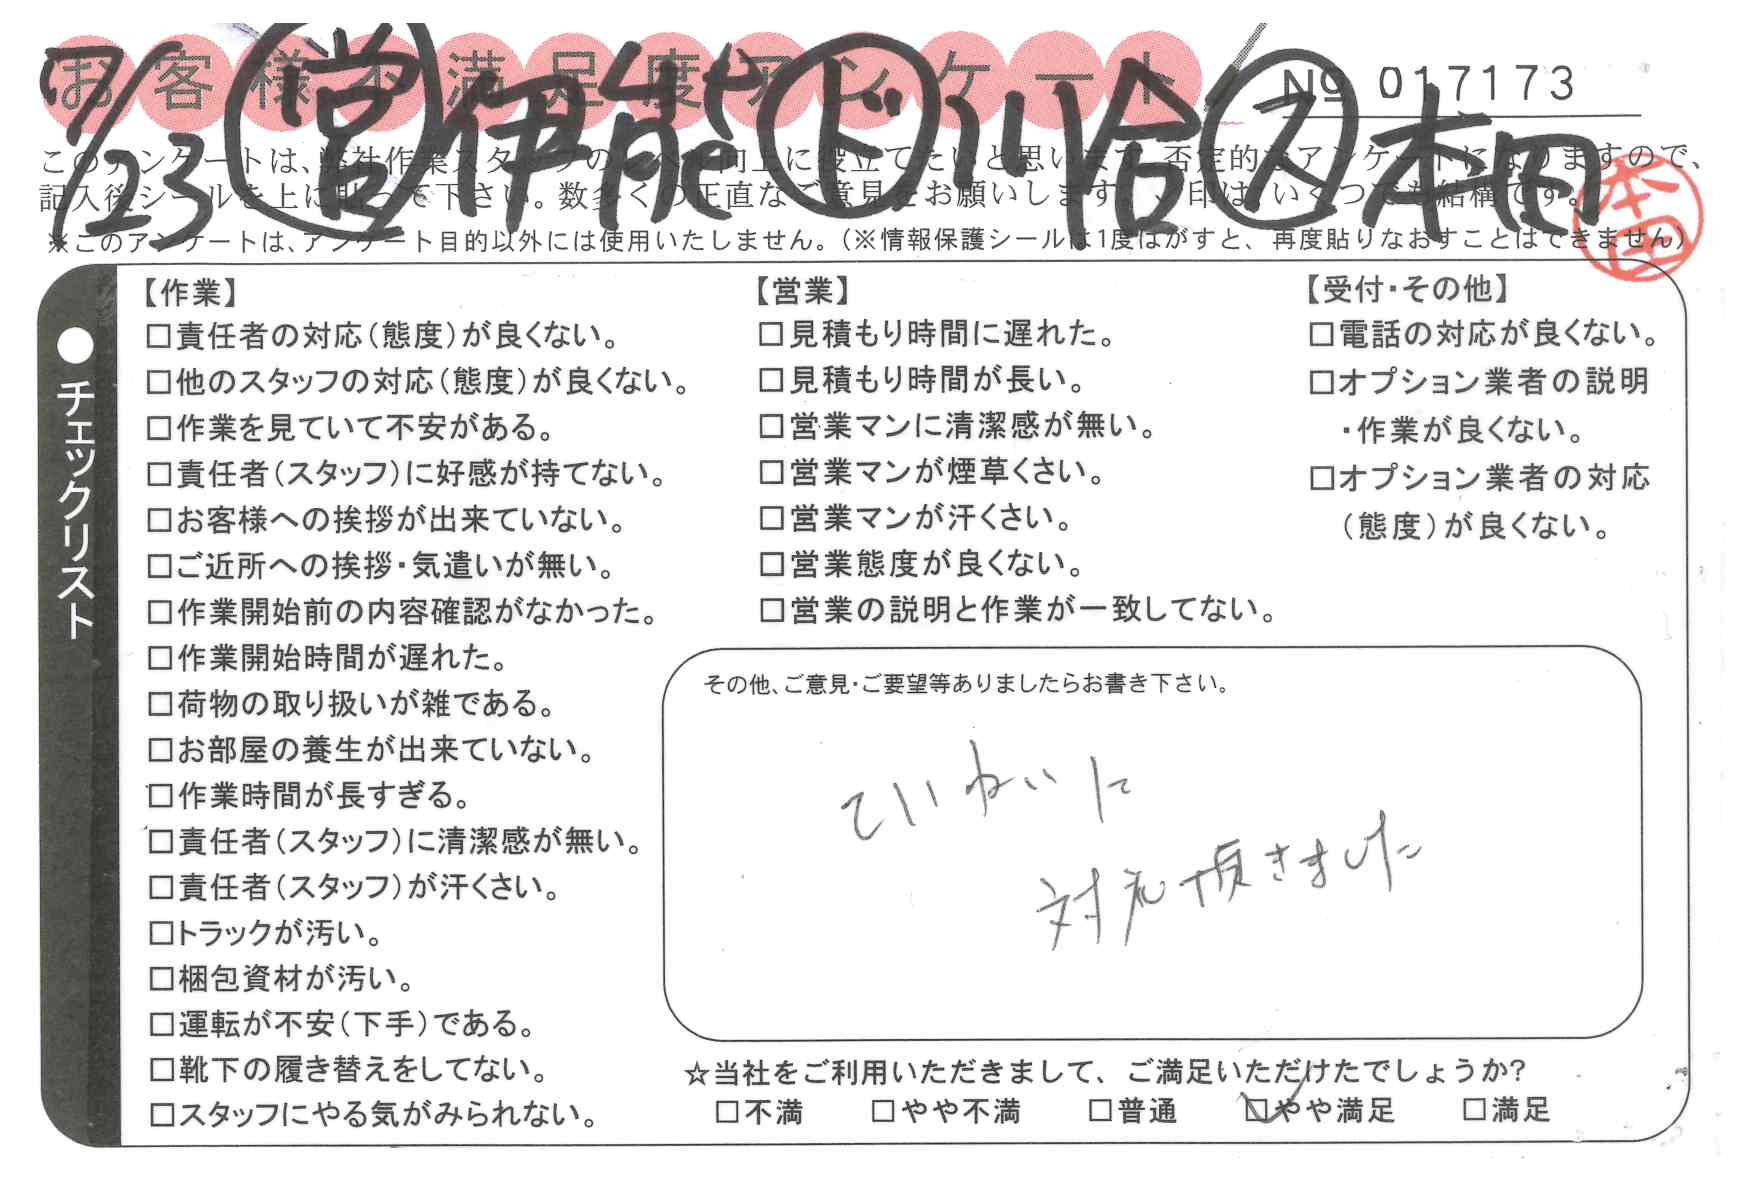 お客様不満足度アンケート
No 017173
7/23 営 伊能 ド 川合 ス 本田
このアンケートは、弊社作業スタッフの 向上に役立てたいと思います。否定的なアンケートになりますので、
記入後シールを上に貼って下さい。数多くの正直なご意見をお願いします。 印は、いくつでも結構です。
※このアンケートは、アンケート目的以外には使用いたしません。(※情報保護シールは1度はがすと、再度貼りなおすことはできません)
本田
●チェックリスト
【作業】
□責任者の対応(態度)が良くない。
□他のスタッフの対応(態度)が良くない。
□作業を見ていて不安がある。
□責任者(スタッフ)に好感が持てない。
□お客様への挨拶が出来ていない。
□ご近所への挨拶・気遣いが無い。
□作業開始前の内容確認がなかった。
□作業開始時間が遅れた。
□荷物の取り扱いが雑である。
□お部屋の養生が出来ていない。
□作業時間が長すぎる。
□責任者(スタッフ)に清潔感が無い。
□責任者(スタッフ)が汗くさい。
□トラックが汚い。
□梱包資材が汚い。
□運転が不安(下手)である。
□靴下の履き替えをしてない。
□スタッフにやる気がみられない。
【営業】
□見積もり時間に遅れた。
□見積もり時間が長い。
□営業マンに清潔感が無い。
□営業マンが煙草くさい。
□営業マンが汗くさい。
□営業態度が良くない。
□営業の説明と作業が一致してない。
【受付・その他】
□電話の対応が良くない。
□オプション業者の説明
・作業が良くない。
□オプション業者の対応
(態度)が良くない。
その他、ご意見・ご要望等ありましたらお書き下さい。
ていねいに
対応頂きました
☆当社をご利用いただきまして、ご満足いただけたでしょうか?
□不満 □やや不満 □普通 ☑やや満足 □満足